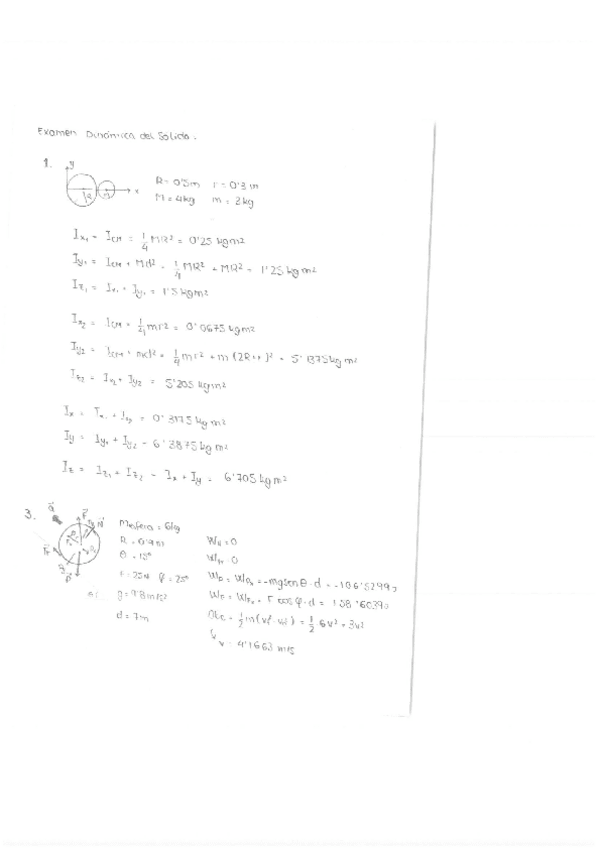 Examen Dinámica del Sólido.
1.
y
x
R = 0'5m r = 0'3 m
M = 4kg m = 2kg
Ix₁ = ICM = 1/4 MR² = 0'25 kgm²
Iy₁ = ICM + Md² = 1/4 MR² + MR² = 1'25 kgm²
Iz₁ = Ix₁ + Iy₁ = 1'5 kgm²
Ix₂ = ICM = 1/4 mr² = 0'0675 kgm²
Iy₂ = ICM + md² = 1/4 mr² + m(2R+r)² = 5'1375 kgm²
Iz₂ = Ix₂ + Iy₂ = 5'205 kgm²
Ix = Ix₁ + Ix₂ = 0'3175 kgm²
Iy = Iy₁ + Iy₂ = 6'3875 kgm²
Iz = Iz₁ + Iz₂ = Ix + Iy = 6'705 kgm²
3.
Mesfera = 6kg
θ = 15º
F = 25N φ = 25º
g = 9'8m/s²
d = 7m
WN = 0
= -mgsenθ·d =
= F cosφ·d = 158'6039
= 1/2 m(vf² - v₀²) = 1/2 6v² = 3v²
v = 4'1663 m/s